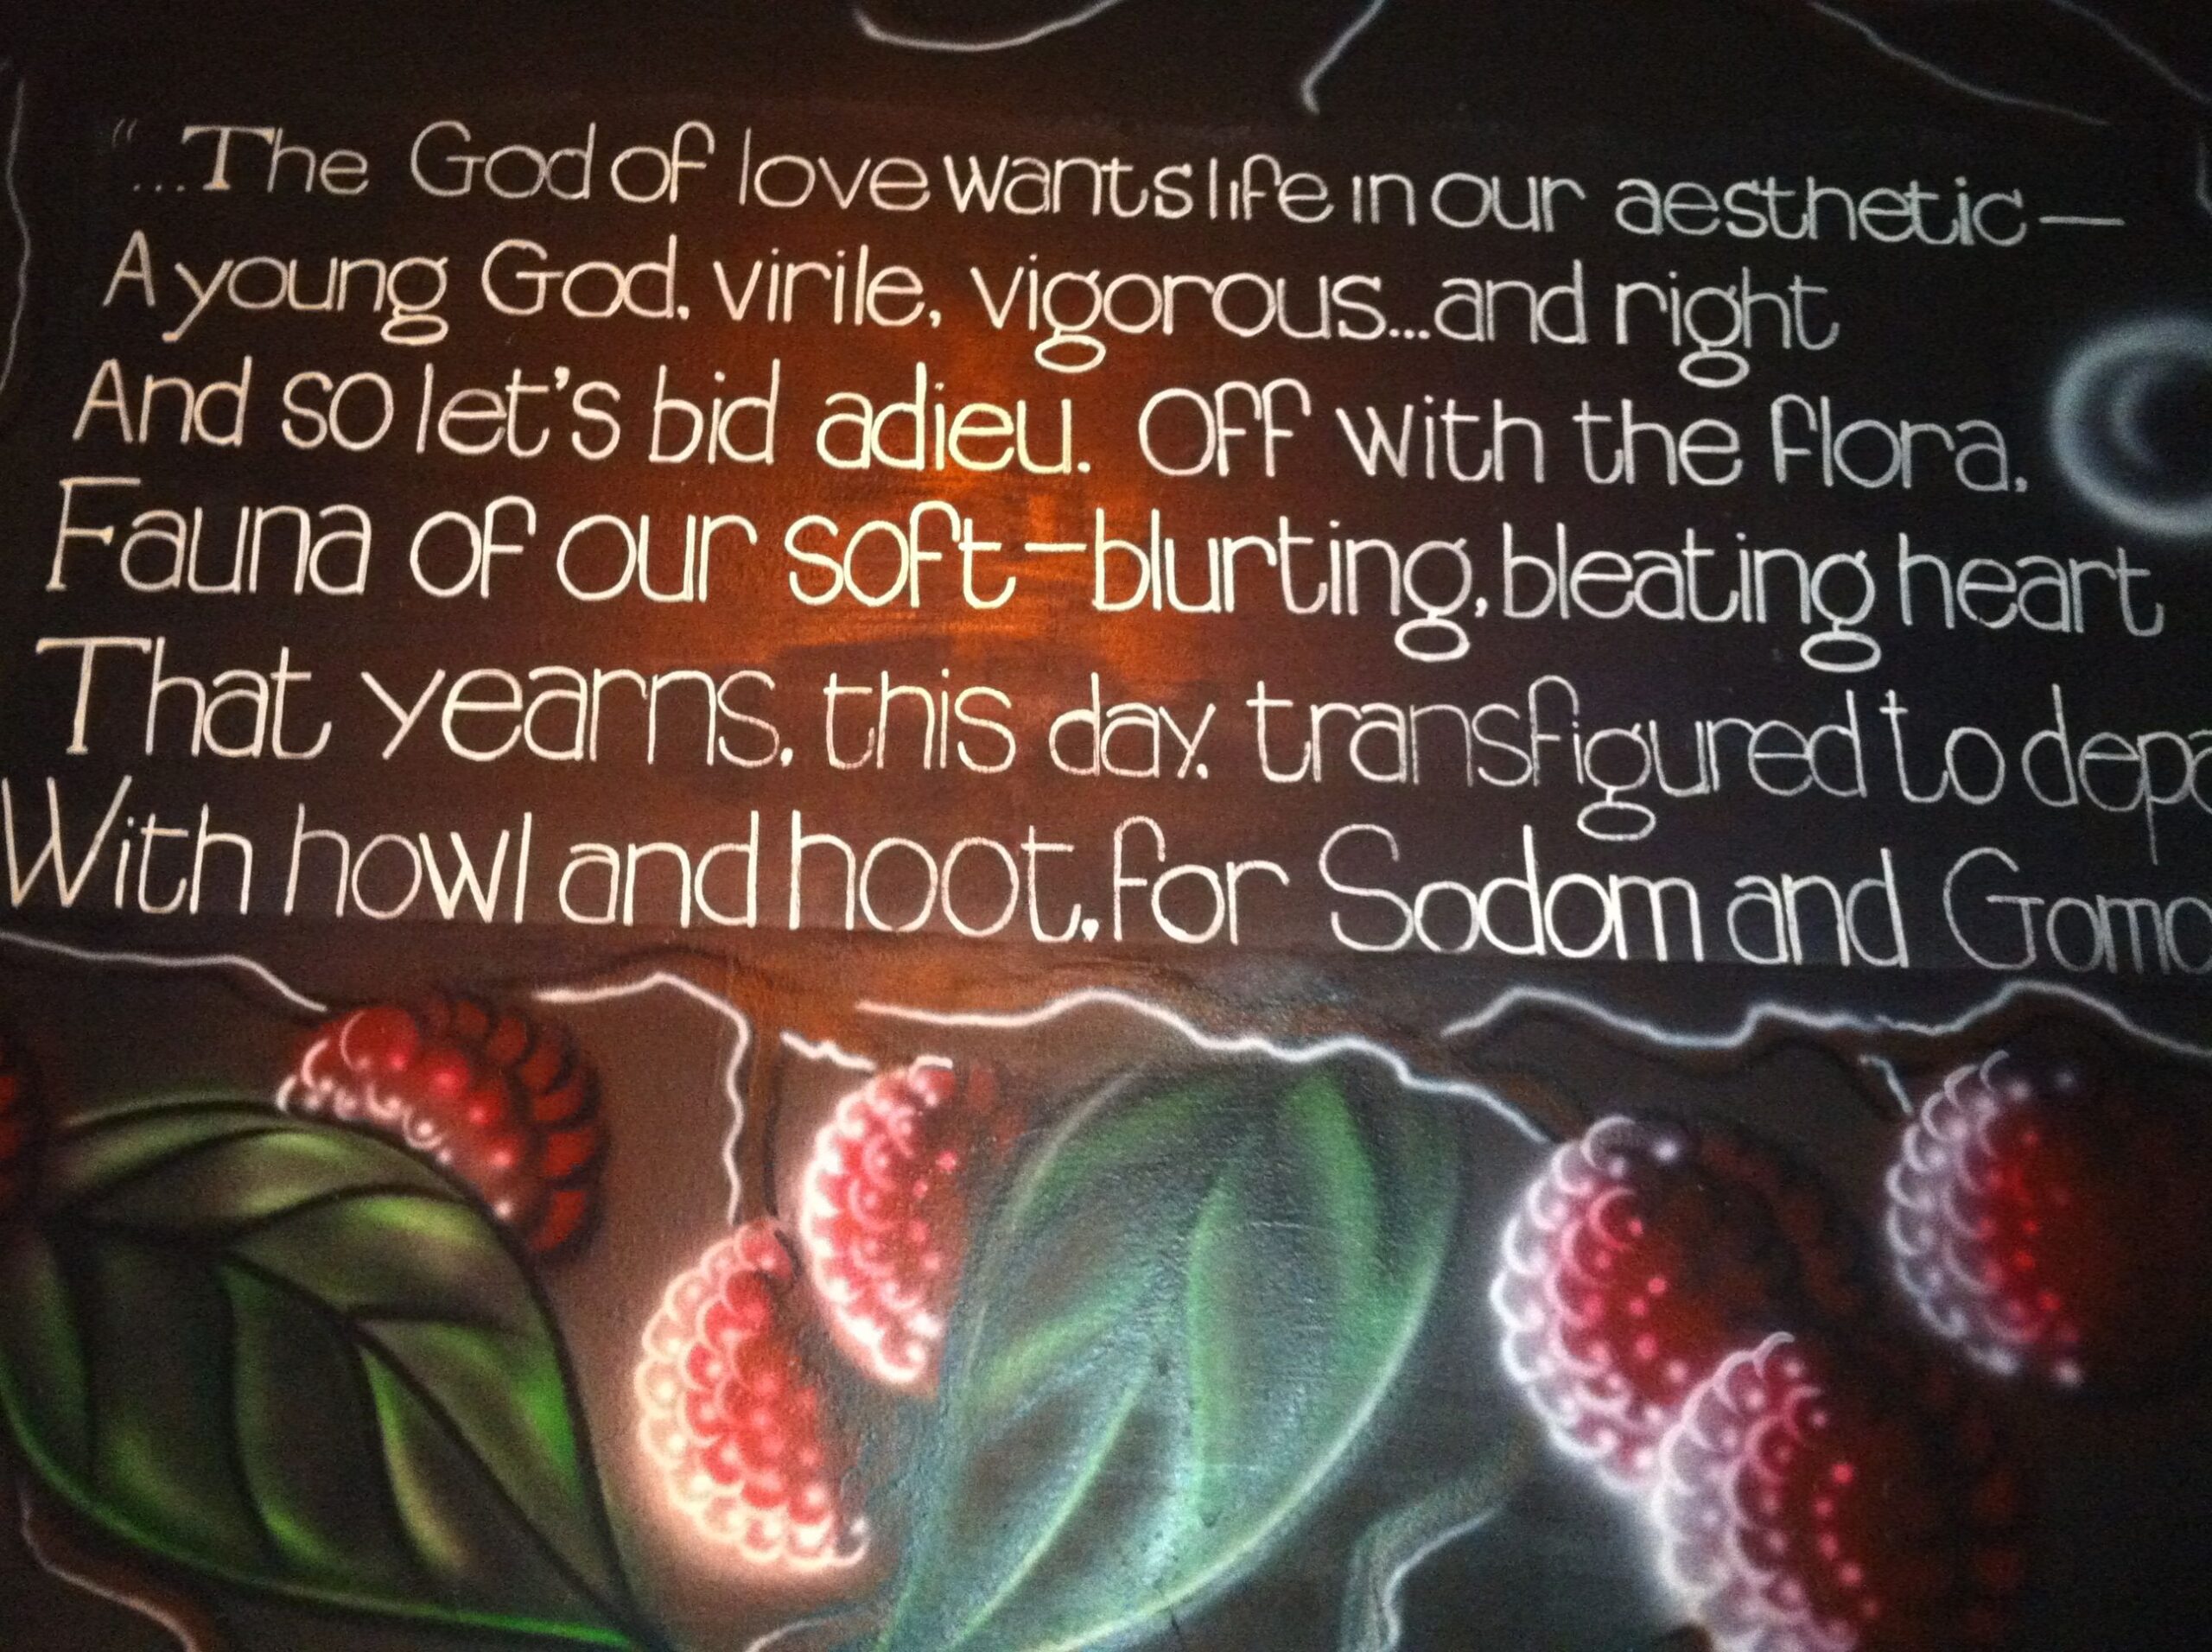 “...The God of love wants life in our aesthetic—
A young God, virile, vigorous...and right
And so let's bid adieu. Off with the flora,
Fauna of our soft—blurting, bleating heart
That yearns, this day, transfigured to depa
With howl and hoot, for Sodom and Gomo